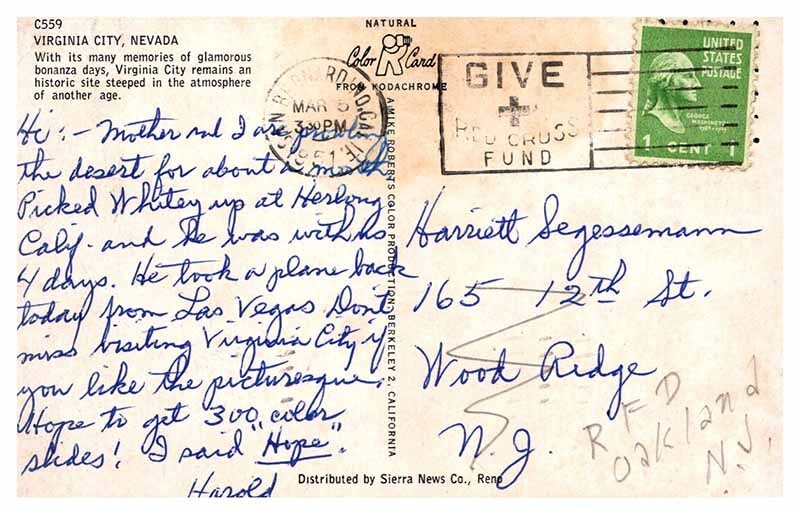 C559
VIRGINIA CITY, NEVADA
With its many memories of glamorous
bonanza days, Virginia City remains an
historic site steeped in the atmosphere
of another age.
NATURAL
Color Card
FROM KODACHROME
SAN BERNARDINO, CALIF.
MAR 5
3:30 PM
1951
GIVE
+
RED CROSS
FUND
UNITED
STATES
POSTAGE
GEORGE
WASHINGTON
1 CENT 1
Hi: - Mother and I are
the desert for about a month
Picked Whitey up at Herlong
Calif. and he was with us
4 days. He took a plane back
today from Las Vegas. Don't
miss visiting Virginia City if
you like the picturesque.
Hope to get 300 color
slides! I said "Hope".
Harold
A MIKE ROBERTS COLOR PRODUCTION, BERKELEY 2, CALIFORNIA
Harriett Segessemann
165 12th St.
Wood Ridge
N.J.
RFD
Oakland
N.J.
Distributed by Sierra News Co., Reno